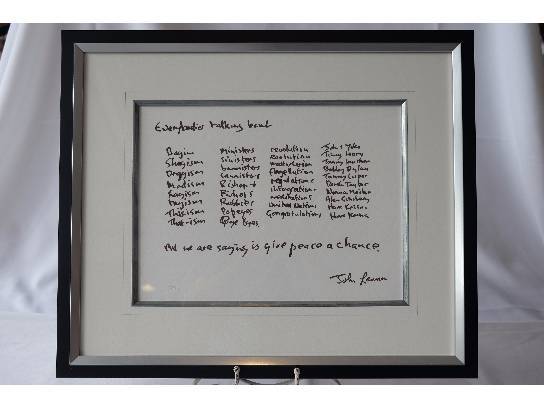 Everybodies talking bout
Bagism ministers revolution John + Yoko
Shagism sinisters evolution Timmy Leary
Dragism banisters masturbation
Madism canisters flagellation Bobby Dylan
Ragism Bishops regulations Tommy Cooper
Tagism Fishops integrations Derek Taylor
Thisism Rabbies meditations Norman Mailer
That-ism Popeyes United Nations Alan Ginsberg
Bye byes Congratulations Hare Krishna
Hare Krishna
All we are saying is give peace a chance
John Lennon